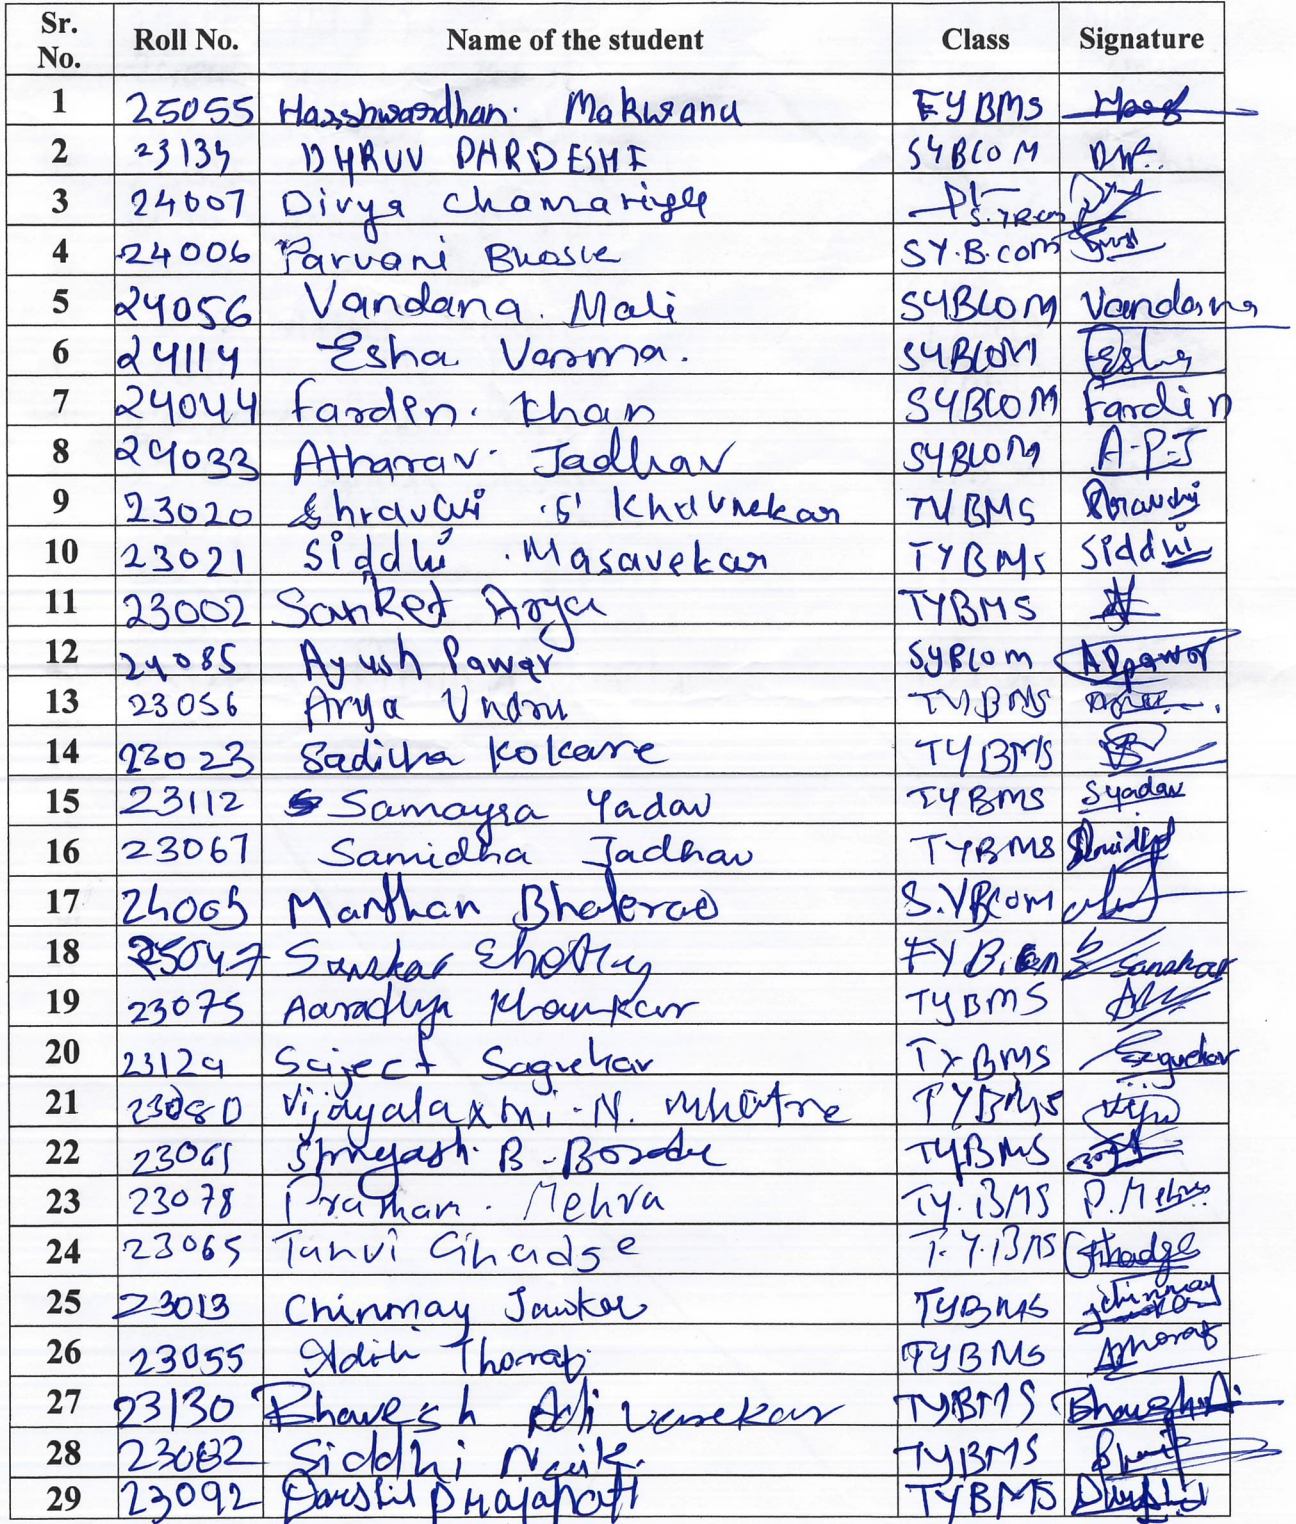 Sr. No. Roll No. Name of the student Class Signature
1 25055 Harshwardhan. Makwana FYBMS
2 23134 DHRUV PARDESHI SYBCOM D.P.
3 24007 Divya Chamariya
4 24006 Parvani Bhosle SY.B.COM
5 24056 Vandana. Mali SYBCOM Vandana
6 24114 Esha Varma. SYBCOM Esha
7 24044 Farden. Khan SYBCOM Fardin
8 24033 Atharav. Jadhav SYBCOM A.P.J
9 23020 Shravani .S. Khavnekar TYBMS Shravani
10 23021 Siddhi . Masavekar TYBMS Siddhi
11 23002 Sanket Arya TYBMS
12 24085 Ayush Pawar SYBCOM APpawar
13 23056 Arya Undru TYBMS
14 23023 Sadicha Kokare TYBMS
15 23112 Samayra Yadav TYBMS Syadav
16 23067 Samidha Jadhav TYBMS
17 24005 Manthan Bhalerao S.YBCOM
18 25047 Sanskar Shetty FY Sanskar
19 23075 Aaradhya Khamkar TYBMS
20 Saiject Sagvekar TYBMS Sagvekar
21 23080 Vijayalaxmi. N. Mhatre TYBMS
22 23061 Shreyash. B. Borade TYBMS
23 23078 Pratham. Mehra TY.BMS P.Mehra
24 23065 Tanvi Ghadge T.Y.BMS Ghadge
25 23013 Chinmay Jawkar TYBMS Chinmay
26 23055 Aditi Thorat TYBMS AThorat
27 23130 Bhavesh Adivarekar TYBMS
28 23082 Siddhi Naik. TYBMS
29 23092 Darshil Prajapati TYBMS Darshil